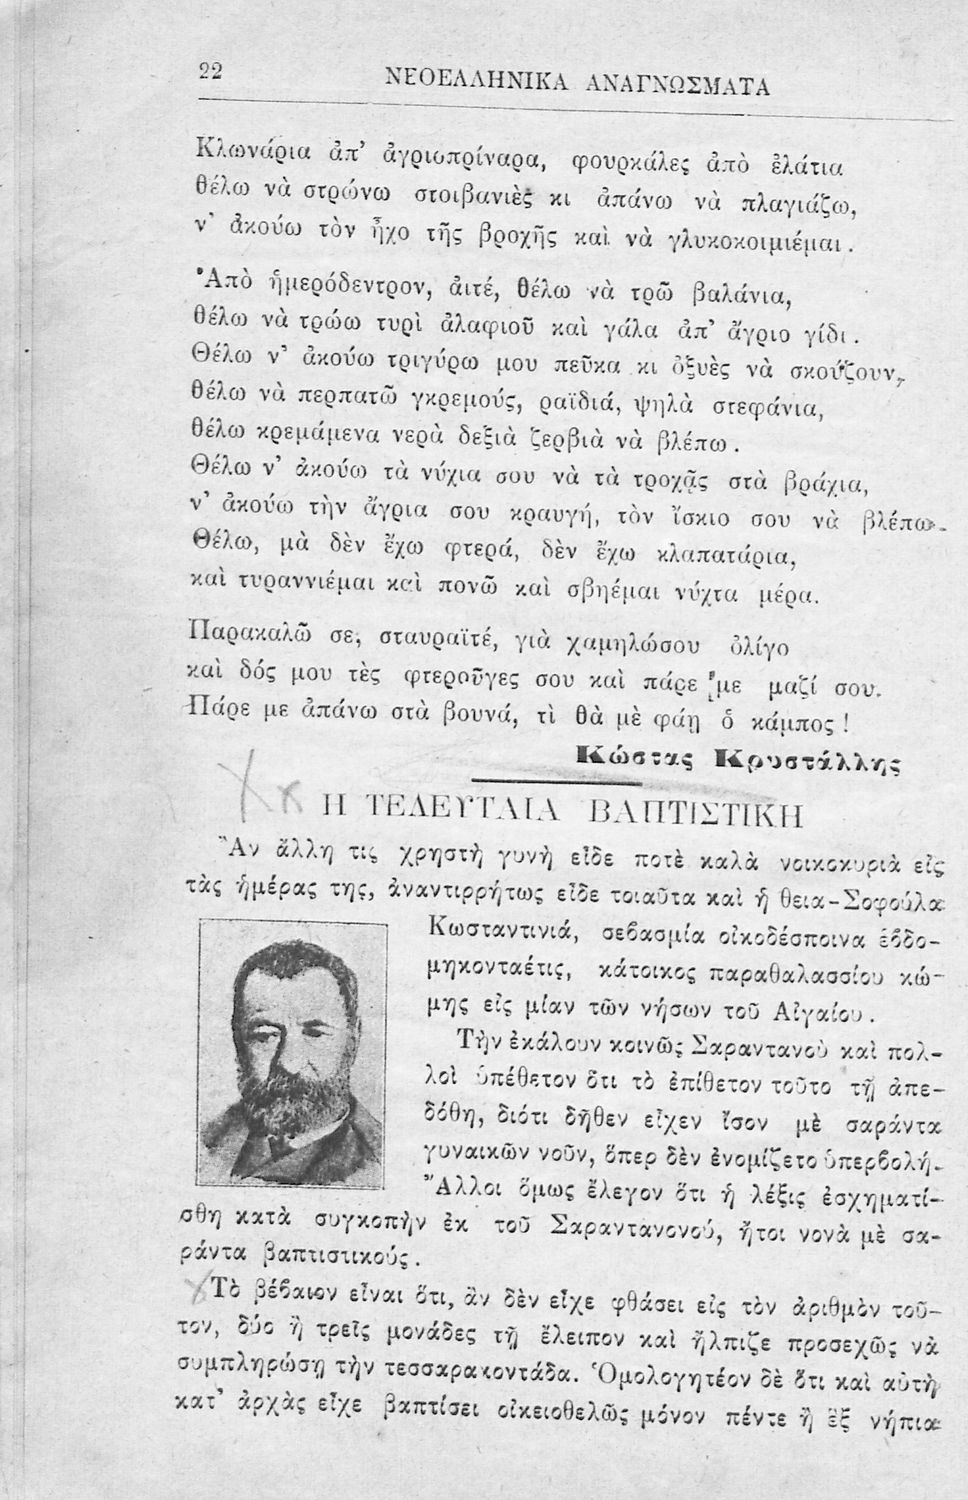 22
ΝΕΟΕΛΛΗΝΙΚΑ ΑΝΑΓΝΩΣΜΑΤΑ
Κλωνάρια ἀπ’ ἀγριοπρίναρα, φουρκάλες ἀπὸ ἐλάτια
θέλω νὰ στρώνω στοιβανιὲς κι ἀπάνω νὰ πλαγιάζω,
ν’ ἀκούω τὸν ἦχο τῆς βροχῆς καὶ νὰ γλυκοκοιμιέμαι.
Ἀπὸ ἡμερόδεντρον, ἀιτέ, θέλω νὰ τρῶ βαλάνια,
θέλω νὰ τρώω τυρὶ ἀλαφιοῦ καὶ γάλα ἀπ’ ἄγριο γίδι.
Θέλω ν’ ἀκούω τριγύρω μου πεῦκα κι ὀξυὲς νὰ σκούζουν,
θέλω νὰ περπατῶ γκρεμούς, ραϊδιά, ψηλὰ στεφάνια,
θέλω κρεμάμενα νερὰ δεξιὰ ζερβιὰ νὰ βλέπω.
Θέλω ν’ ἀκούω τὰ νύχια σου νὰ τὰ τροχᾷς στὰ βράχια,
ν’ ἀκούω τὴν ἄγρια σου κραυγή, τὸν ἴσκιο σου νὰ βλέπω.
Θέλω, μὰ δὲν ἔχω φτερά, δὲν ἔχω κλαπατάρια,
καὶ τυραννιέμαι καὶ πονῶ καὶ σβηέμαι νύχτα μέρα.
Παρακαλῶ σε, σταυραϊτέ, γιὰ χαμηλώσου ὀλίγο
καὶ δός μου τὲς φτεροῦγες σου καὶ πάρε με μαζί σου.
Πάρε με ἀπάνω στὰ βουνά, τὶ θὰ μὲ φάῃ ὁ κάμπος!
Κώστας Κρυστάλλης
Η ΤΕΛΕΥΤΑΙΑ ΒΑΠΤΙΣΤΙΚΗ
Ἂν ἄλλη τις χρηστὴ γυνὴ εἶδε ποτὲ καλὰ νοικοκυριὰ εἰς
τὰς ἡμέρας της, ἀναντιρρήτως εἶδε τοιαῦτα καὶ ἡ θεια-Σοφούλα
Κωσταντινιά, σεβασμία οἰκοδέσποινα ἑβδο-
μηκονταέτις, κάτοικος παραθαλασσίου κώ-
μης εἰς μίαν τῶν νήσων τοῦ Αἰγαίου.
Τὴν ἐκάλουν κοινῶς Σαραντανοὺ καὶ πολ-
λοὶ ὑπέθετον ὅτι τὸ ἐπίθετον τοῦτο τῇ ἀπε-
δόθη, διότι δῆθεν εἶχεν ἴσον μὲ σαράντα
γυναικῶν νοῦν, ὅπερ δὲν ἐνομίζετο ὑπερβολή.
Ἄλλοι ὅμως ἔλεγον ὅτι ἡ λέξις ἐσχηματί-
σθη κατὰ συγκοπὴν ἐκ τοῦ Σαραντανονού, ἤτοι νονὰ μὲ σα-
ράντα βαπτιστικούς.
Τὸ βέβαιον εἶναι ὅτι, ἂν δὲν εἶχε φθάσει εἰς τὸν ἀριθμὸν τοῦ-
τον, δύο ἢ τρεῖς μονάδες τῇ ἔλειπον καὶ ἤλπιζε προσεχῶς νὰ
συμπληρώσῃ τὴν τεσσαρακοντάδα. Ὁμολογητέον δὲ ὅτι καὶ αὐτὴ
κατ’ ἀρχὰς εἶχε βαπτίσει οἰκειοθελῶς μόνον πέντε ἢ ἓξ νήπια